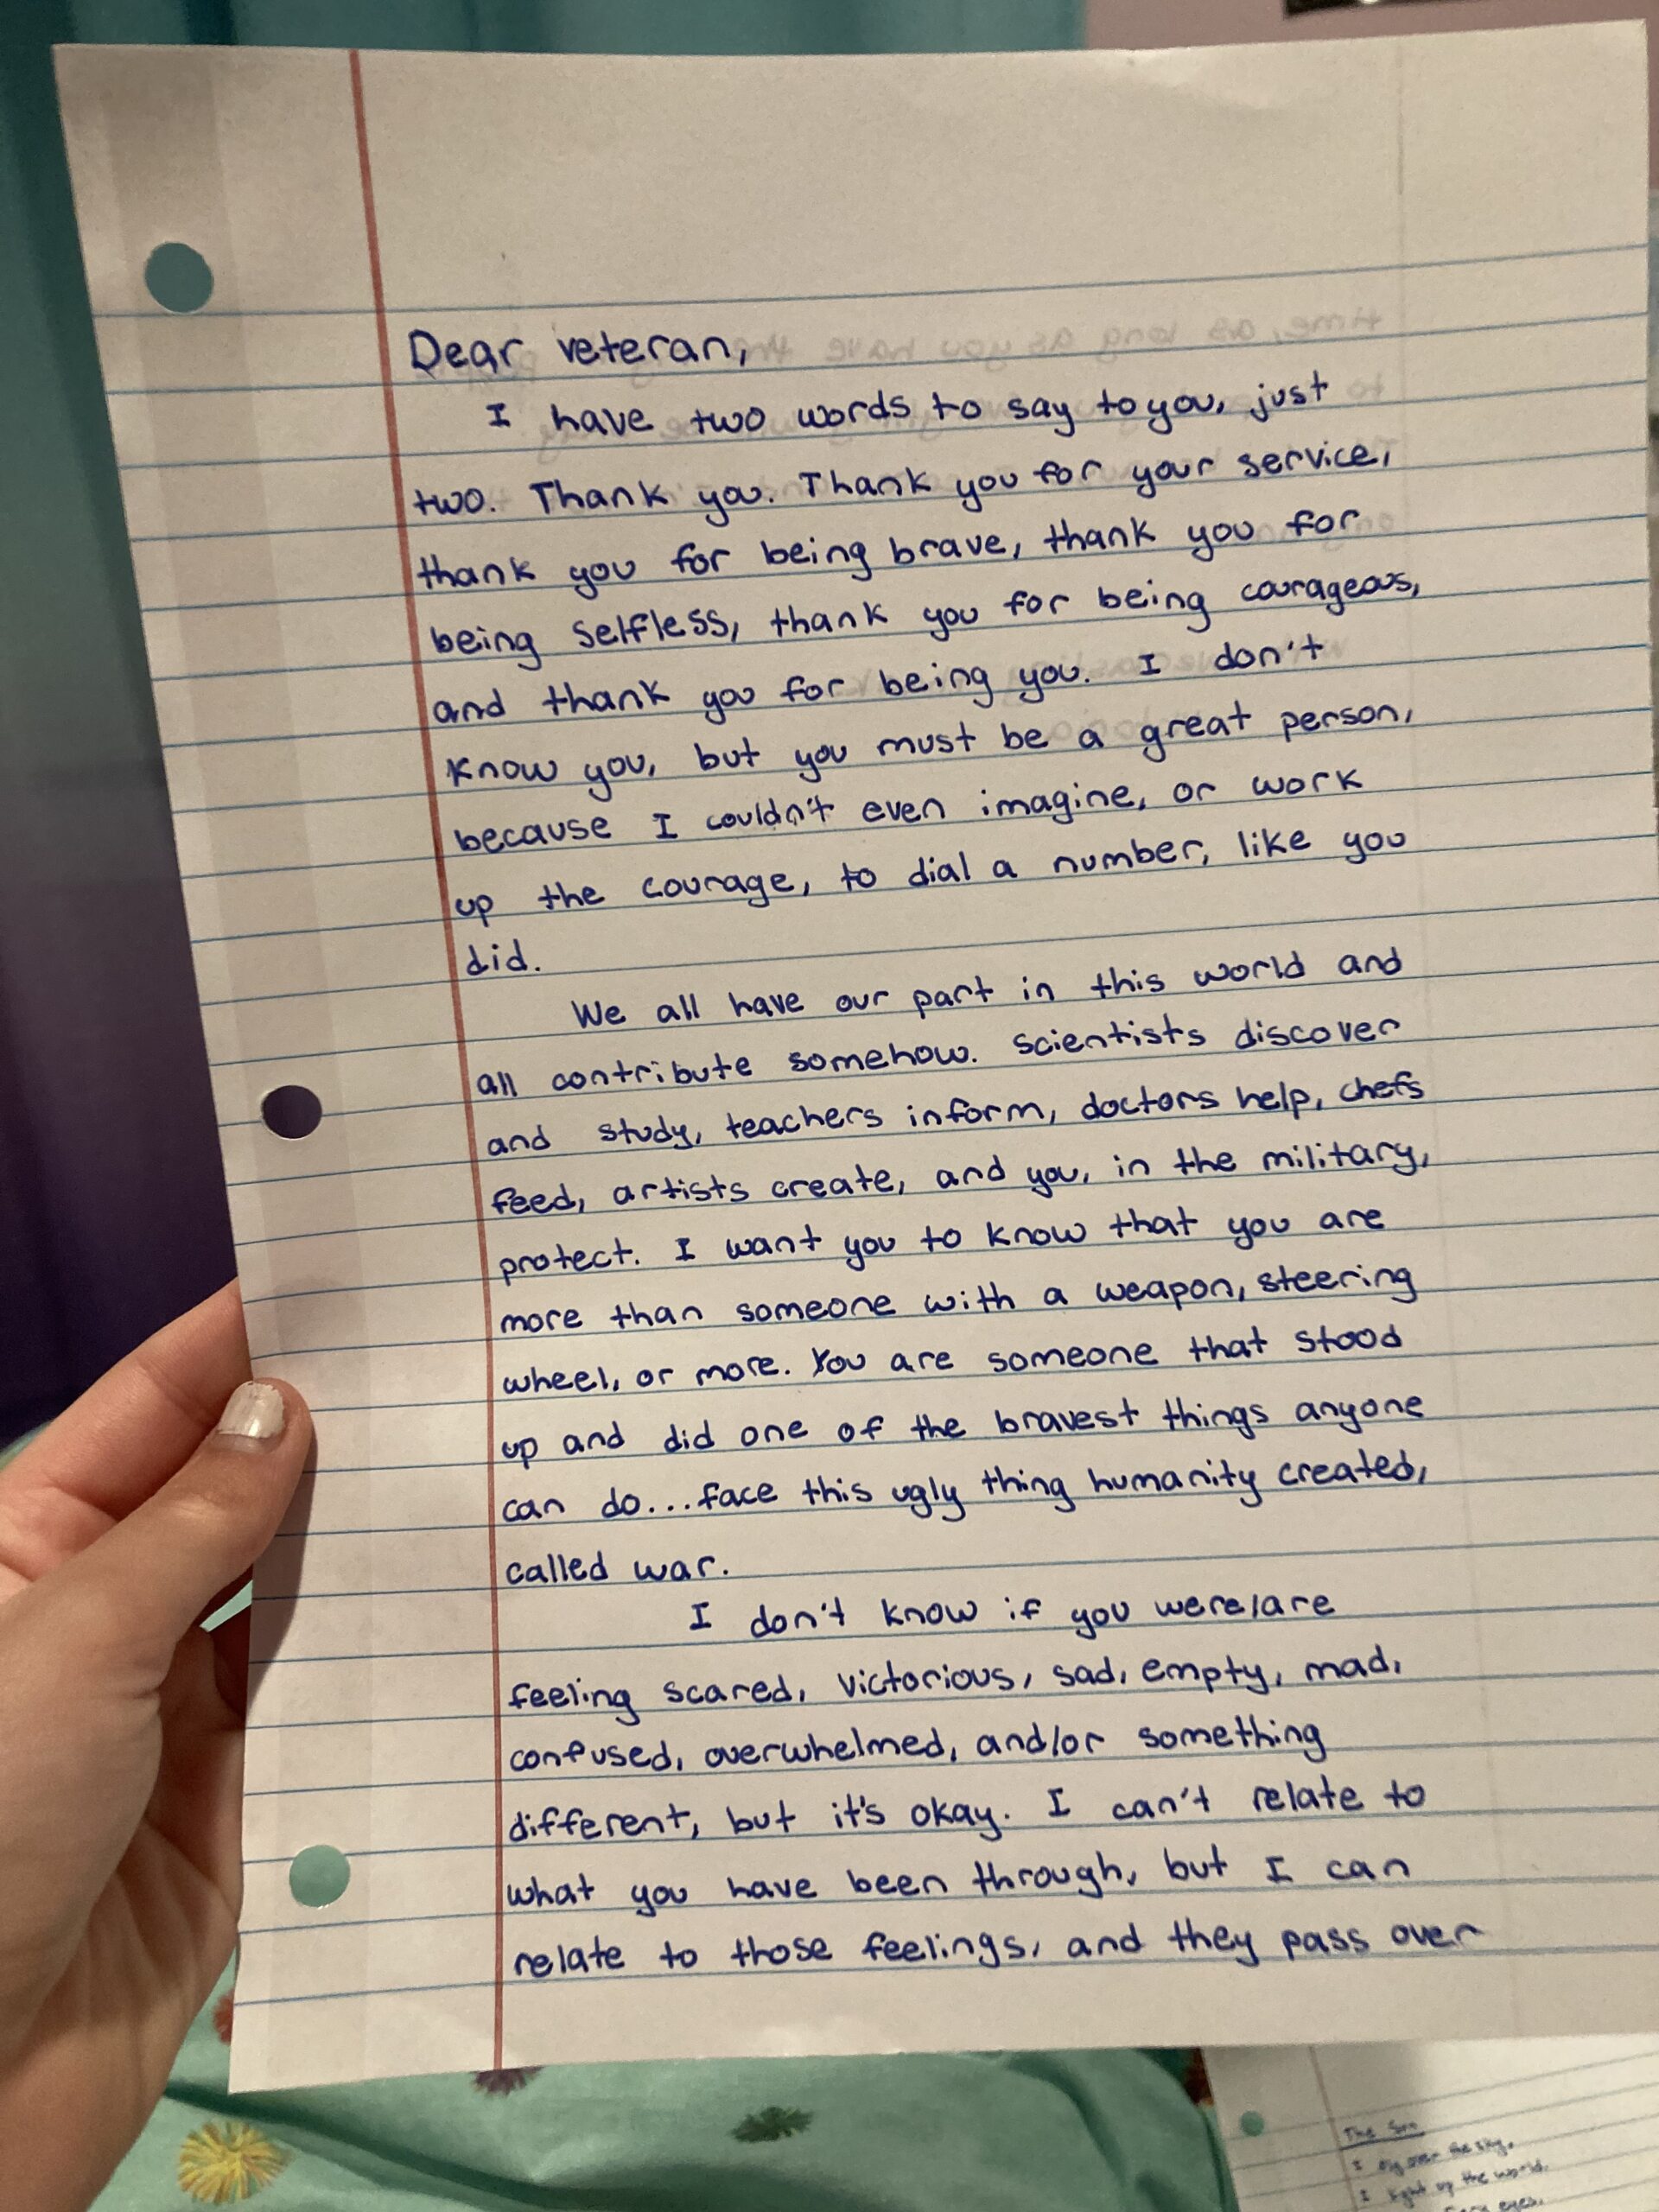 Dear veteran,
I have two words to say to you, just
two. Thank you. Thank you for your service,
thank you for being brave, thank you for
being selfless, thank you for being courageous,
and thank you for being you. I don't
know you, but you must be a great person,
because I couldn't even imagine, or work
up the courage, to dial a number, like you
did.
We all have our part in this world and
all contribute somehow. Scientists discover
and study, teachers inform, doctors help, chefs
feed, artists create, and you, in the military,
protect. I want you to know that you are
more than someone with a weapon, steering
wheel, or more. You are someone that stood
up and did one of the bravest things anyone
can do...face this ugly thing humanity created,
called war.
I don't know if you were/are
feeling scared, victorious, sad, empty, mad,
confused, overwhelmed, and/or something
different, but it's okay. I can't relate to
what you have been through, but I can
relate to those feelings, and they pass over
time, as long as you have the
The Sun
I over the sky.
I light up the world.
eyes.